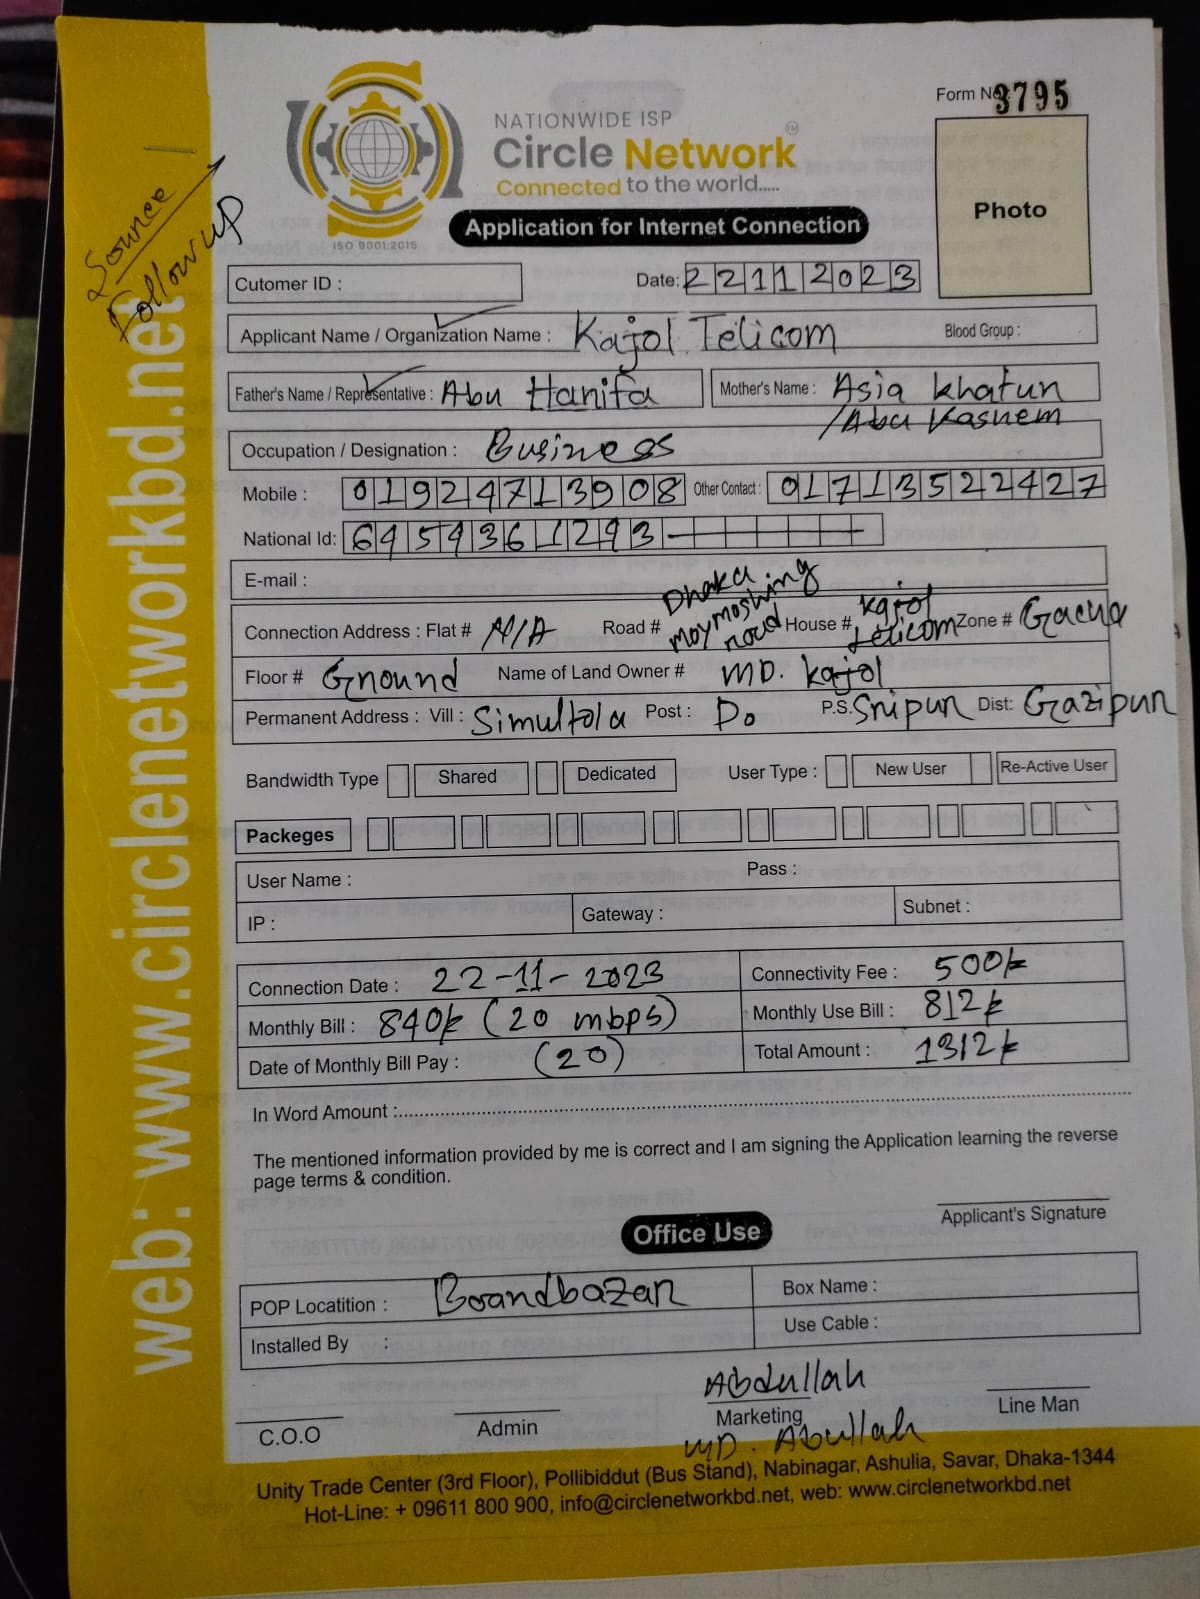 Form No. 3795
NATIONWIDE ISP
Circle Network TM
Connected to the world.....
ISO 9001:2015
Application for Internet Connection
Photo
Sounce
Follow up
Cutomer ID :
Date: 22112023
Applicant Name / Organization Name : Kajol Telicom Blood Group :
Father's Name / Representative : Abu Hanifa Mother's Name : Asia Khatun
/Abu Kashem
Occupation / Designation : Business
Mobile : 01924713908 Other Contact : 01713522427
National Id: 6459361293
E-mail :
Connection Address : Flat # N/A Road # Dhaka moymoshing road House # Kajol telicom Zone # Gacha
Floor # Ground Name of Land Owner # MD. Kajol
Permanent Address : Vill : Simultola Post : Do P.S. Sripur Dist: Gazipur
Bandwidth Type Shared Dedicated User Type : New User Re-Active User
Packeges
User Name : Pass :
IP : Gateway : Subnet :
Connection Date : 22-11-2023 Connectivity Fee : 500/=
Monthly Bill : 840/= (20 mbps) Monthly Use Bill : 812/=
Date of Monthly Bill Pay : (20) Total Amount : 1312/=
In Word Amount :
The mentioned information provided by me is correct and I am signing the Application learning the reverse
page terms & condition.
Applicant's Signature
Office Use
POP Locatition : Boardbazar Box Name :
Installed By : Use Cable :
Abdullah
C.O.O Admin Marketing Line Man
MD. Abullah
Unity Trade Center (3rd Floor), Pollibiddut (Bus Stand), Nabinagar, Ashulia, Savar, Dhaka-1344
Hot-Line: + 09611 800 900, info@circlenetworkbd.net, web: www.circlenetworkbd.net
web: www.circlenetworkbd.net